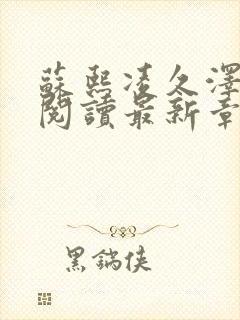 蘇熙凌久澤
閱讀最新章
黑鍋俠